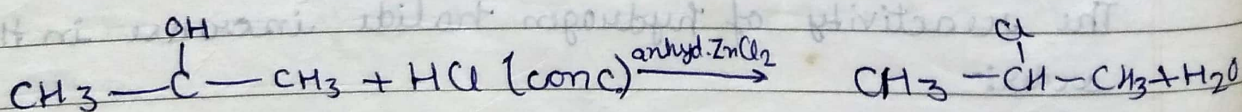 OH
Cl
CH3—C—CH3 + HCl (conc) anhyd. ZnCl2 → CH3—CH—CH3 + H2O